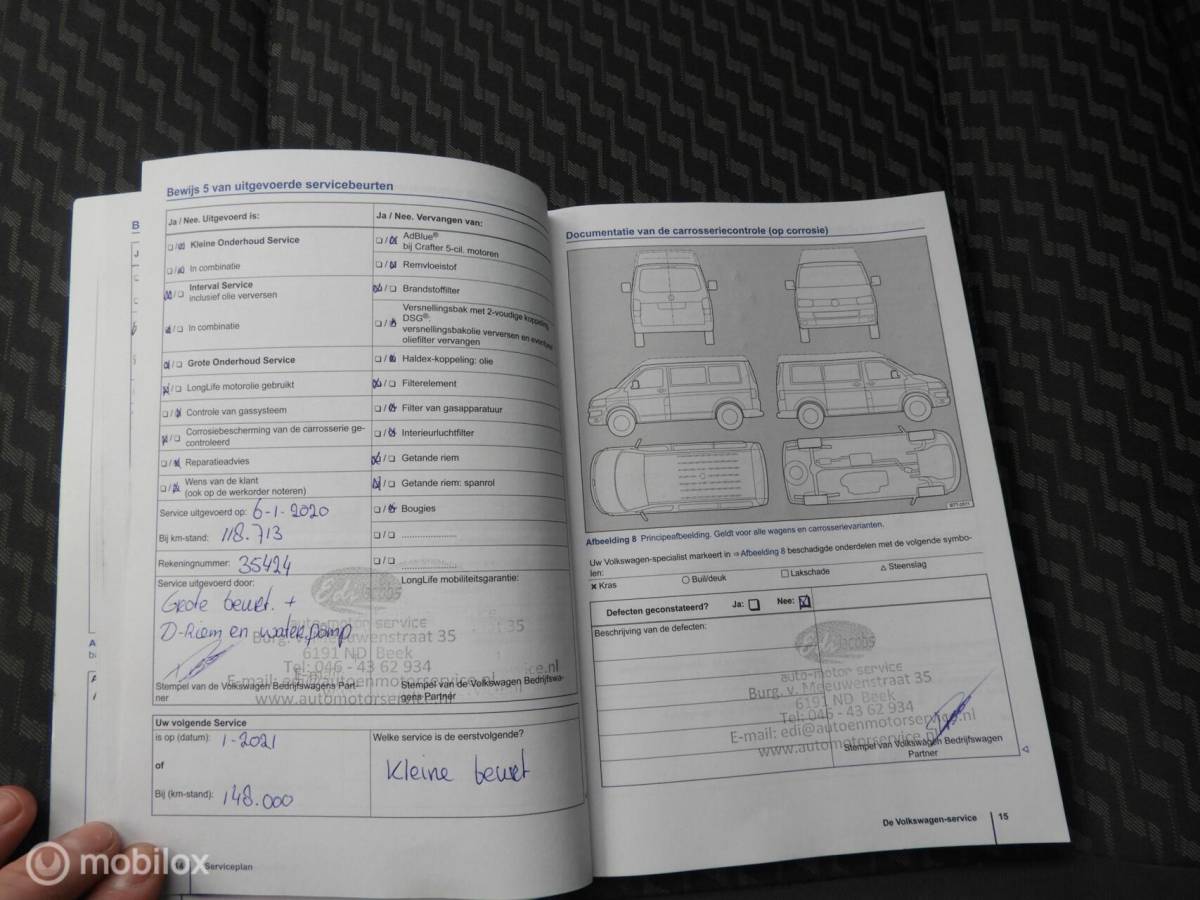 Bewijs 5 van uitgevoerde servicebeurten
Ja / Nee. Uitgevoerd is:
Kleine Onderhoud Service
In combinatie
Interval Service
inclusief olie verversen
In combinatie
Grote Onderhoud Service
LongLife motorolie gebruikt
Controle van gassysteem
Corrosiebescherming van de carrosserie ge-
controleerd
Reparatieadvies
Wens van de klant
(ook op de werkorder noteren)
Service uitgevoerd op: 6-1-2020
Bij km-stand: 118.713
Rekeningnummer: 35424
Service uitgevoerd door:
Grote beurt. +
D-Riem en waterpomp
Stempel van de Volkswagen Bedrijfswagens Part-
ner
Ja / Nee. Vervangen van:
AdBlue®
bij Crafter 5-cil. motoren
Remvloeistof
Brandstoffilter
Versnellingsbak met 2-voudige koppeling
DSG®:
versnellingsbakolie verversen en eventueel
oliefilter vervangen
Haldex-koppeling: olie
Filterelement
Filter van gasapparatuur
Interieurluchtfilter
Getande riem
Getande riem: spanrol
Bougies
LongLife mobiliteitsgarantie:
Edi Jacobs
auto-motor service
Burg. v. Meeuwenstraat 35
6191 ND Beek
Tel: 046 - 43 62 934
E-mail: edi@autoenmotorservice.nl
www.automotorservice.nl
Stempel van de Volkswagen Bedrijfswa-
gens Partner
Uw volgende Service
is op (datum): 1-2021
of
Bij (km-stand): 148.000
Welke service is de eerstvolgende?
Kleine beurt
Serviceplan
Documentatie van de carrosseriecontrole (op corrosie)
Afbeelding 8 Principeafbeelding. Geldt voor alle wagens en carrosserievarianten.
Uw Volkswagen-specialist markeert in ⇒ Afbeelding 8 beschadigde onderdelen met de volgende symbo-
len:
Kras
Buil/deuk
Lakschade
Steenslag
Defecten geconstateerd? Ja: Nee:
Beschrijving van de defecten:
Edi Jacobs
auto-motor service
Burg. v. Meeuwenstraat 35
6191 ND Beek
Tel: 046 - 43 62 934
E-mail: edi@autoenmotorservice.nl
www.automotorservice.nl
Stempel van Volkswagen Bedrijfswagen
Partner
De Volkswagen-service 15
mobilox